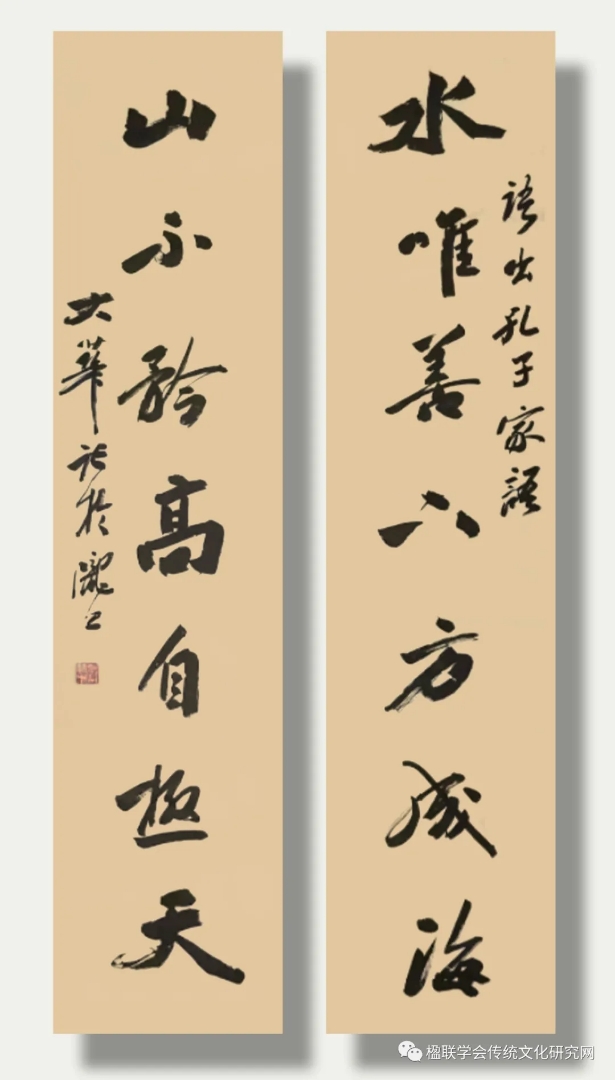 語出孔子家語
水唯善八方成海
山不矜高自極天
大華 於
楹联学会传统文化研究网